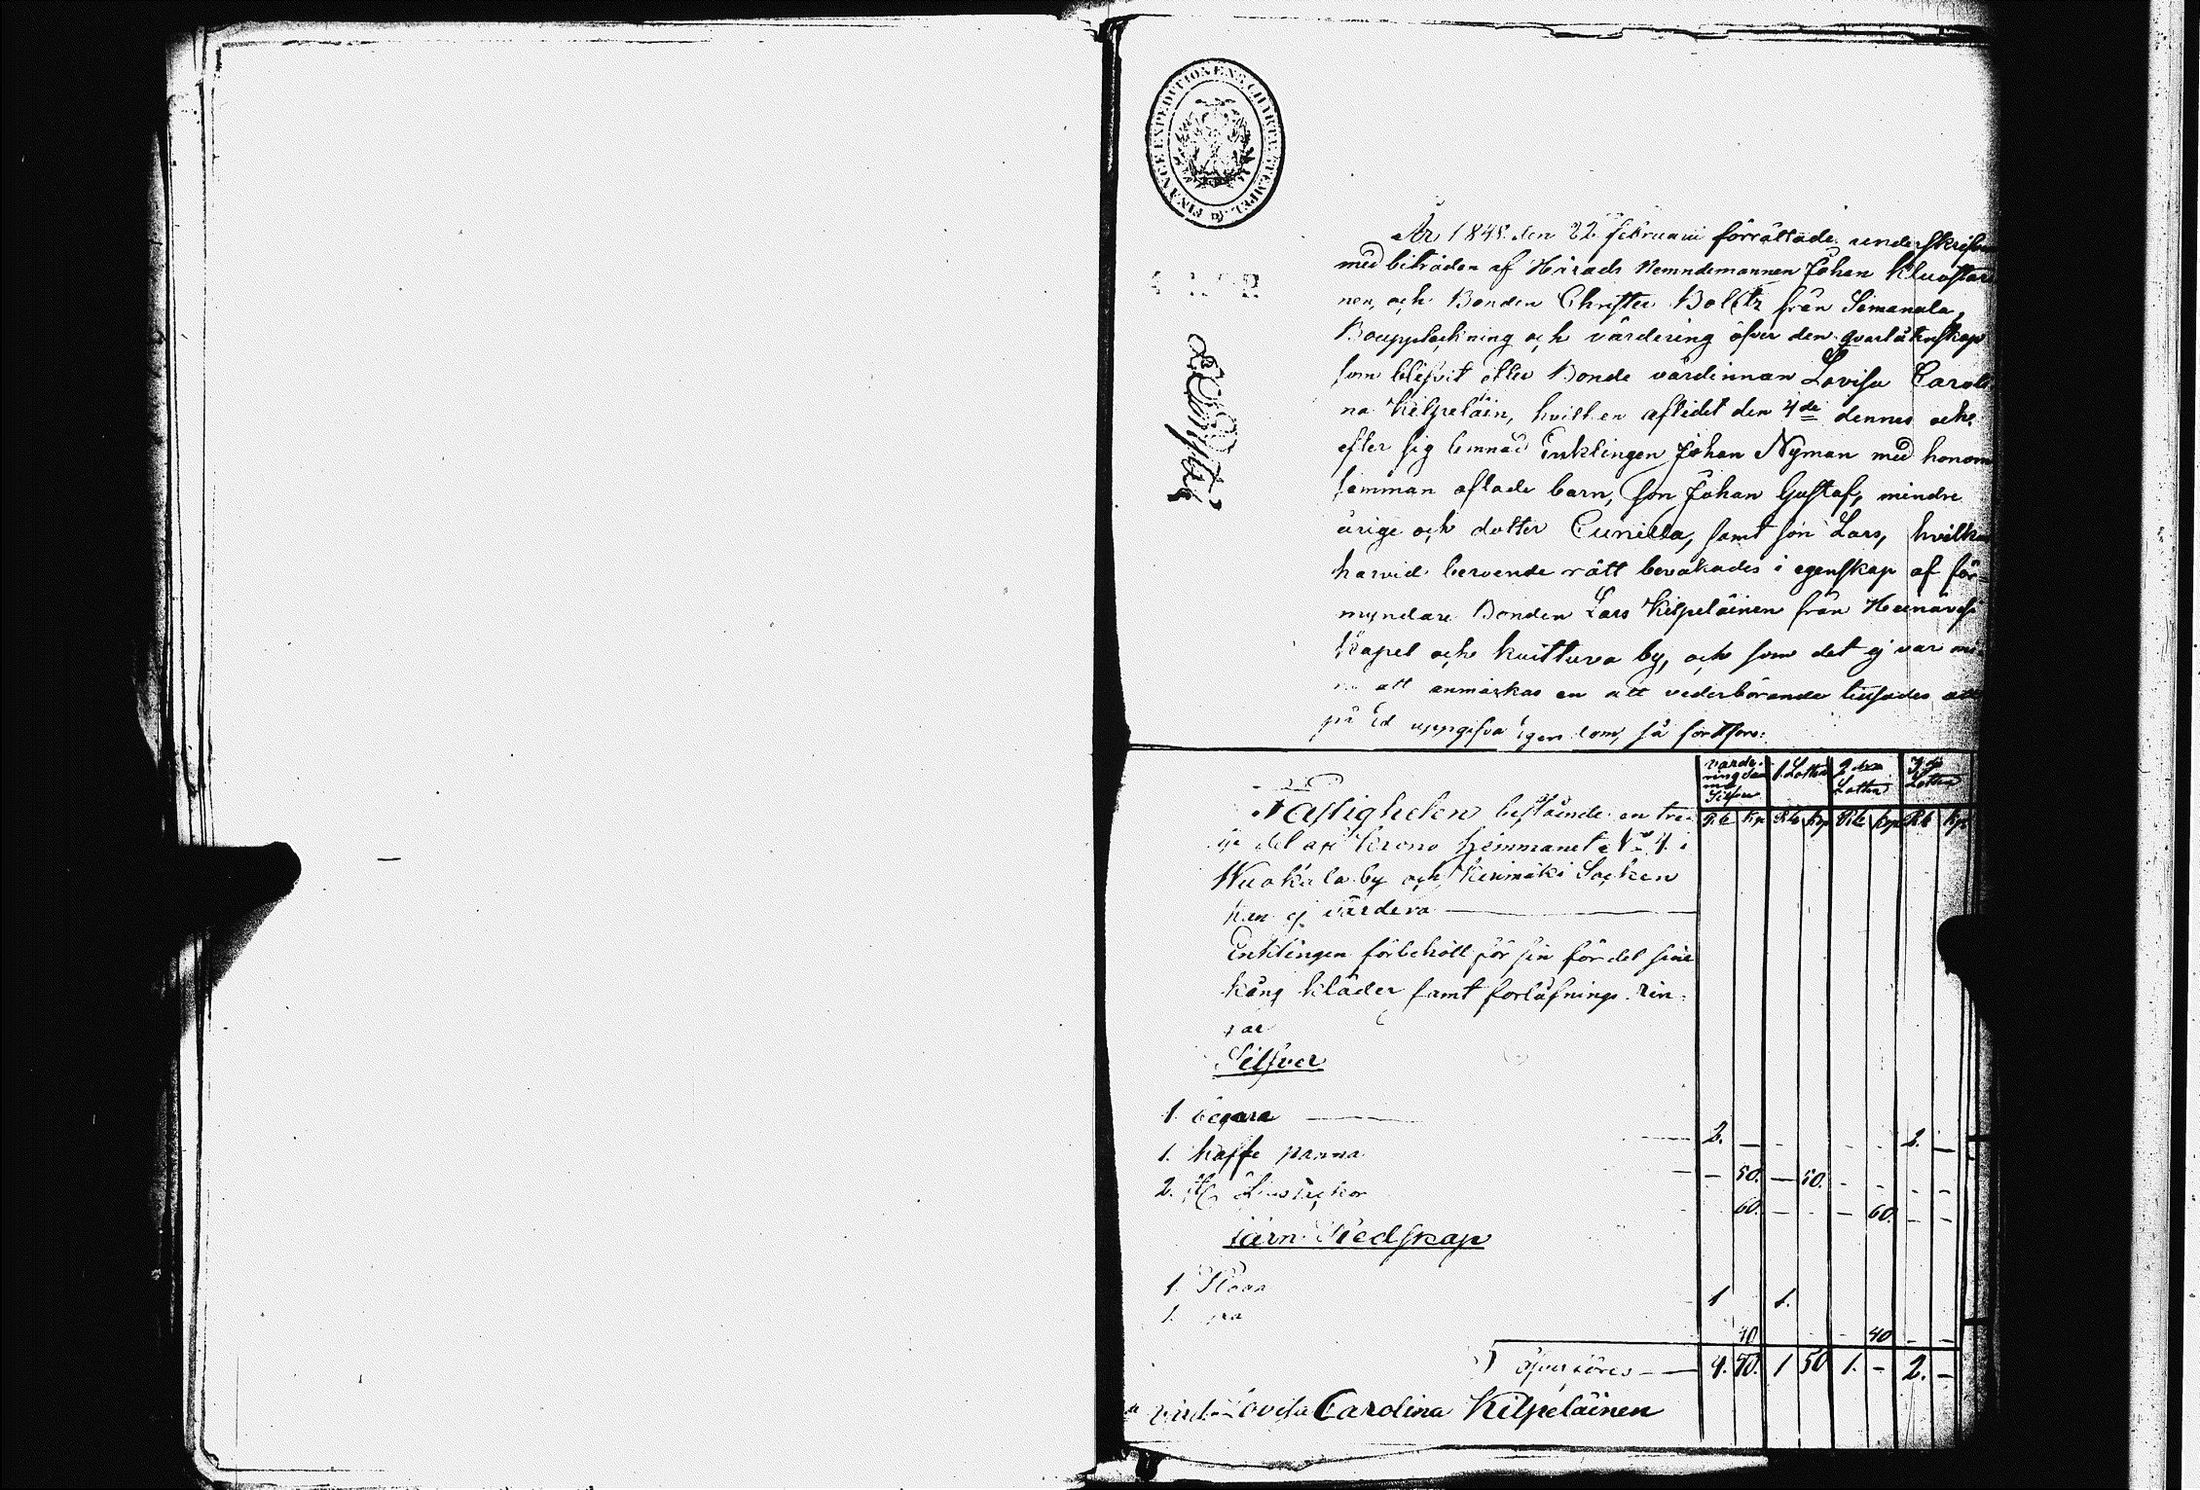 FINANCE EXPEDITIONENS CHARTÆ STEMPEL
År 1848 den 22 februarii förrättade underskrifven
med biträden af Härads Nemndemannen Johan Kluostari
nen, och Bonden Christer Boltz från Simanala,
Bouppteckning och värdering öfver den qvarlåtenskap
som blifvit efter Bonde värdinnan Lovisa Caroli
na Kilpeläin, hvilken aflidit den 4de dennes och
efter sig lemnad Enklingen Johan Nyman med honom
samman aflade barn, son Johan Gustaf, mindre
årige och dotter Cunilla, samt son Lars, hvilkas
härvid beroende rätt bevakades i egenskap af för-
myndare Bonden Lars Kilpeläinen från Heinävesi
Kapel och Kuittuva by, och som det ej var
att anmärkas en att vederbörande tillsades att
på Ed uppgifva Egendom, så fördtfors:
värde-
ning
Silfver 1. Lotten 2 dra Lotten 3 dje Lotten
Rb Kp Rb Kp Rb Kp Rb Kp
Fastigheten bestående en tre
del af Krono Hemmanet No 4 i
Wuokala by och Kerimäki Socken
kan ej värdera
Enklingen förbehölt för sin fördel sine
Gång kläder samt förlofnings rin-
gar
Silfver
1. begare 2. - - - - - 2. -
1. kaffe panna - 50. - 50. - - - -
2. st ljustickor 60. - - - 60. - -
Järn Redskap
1. 1 1.
1. 40 - 40 - -
öfverföres 4. 50. 1 50 1. - 2. -
Lovisa Carolina Kilpeläinen